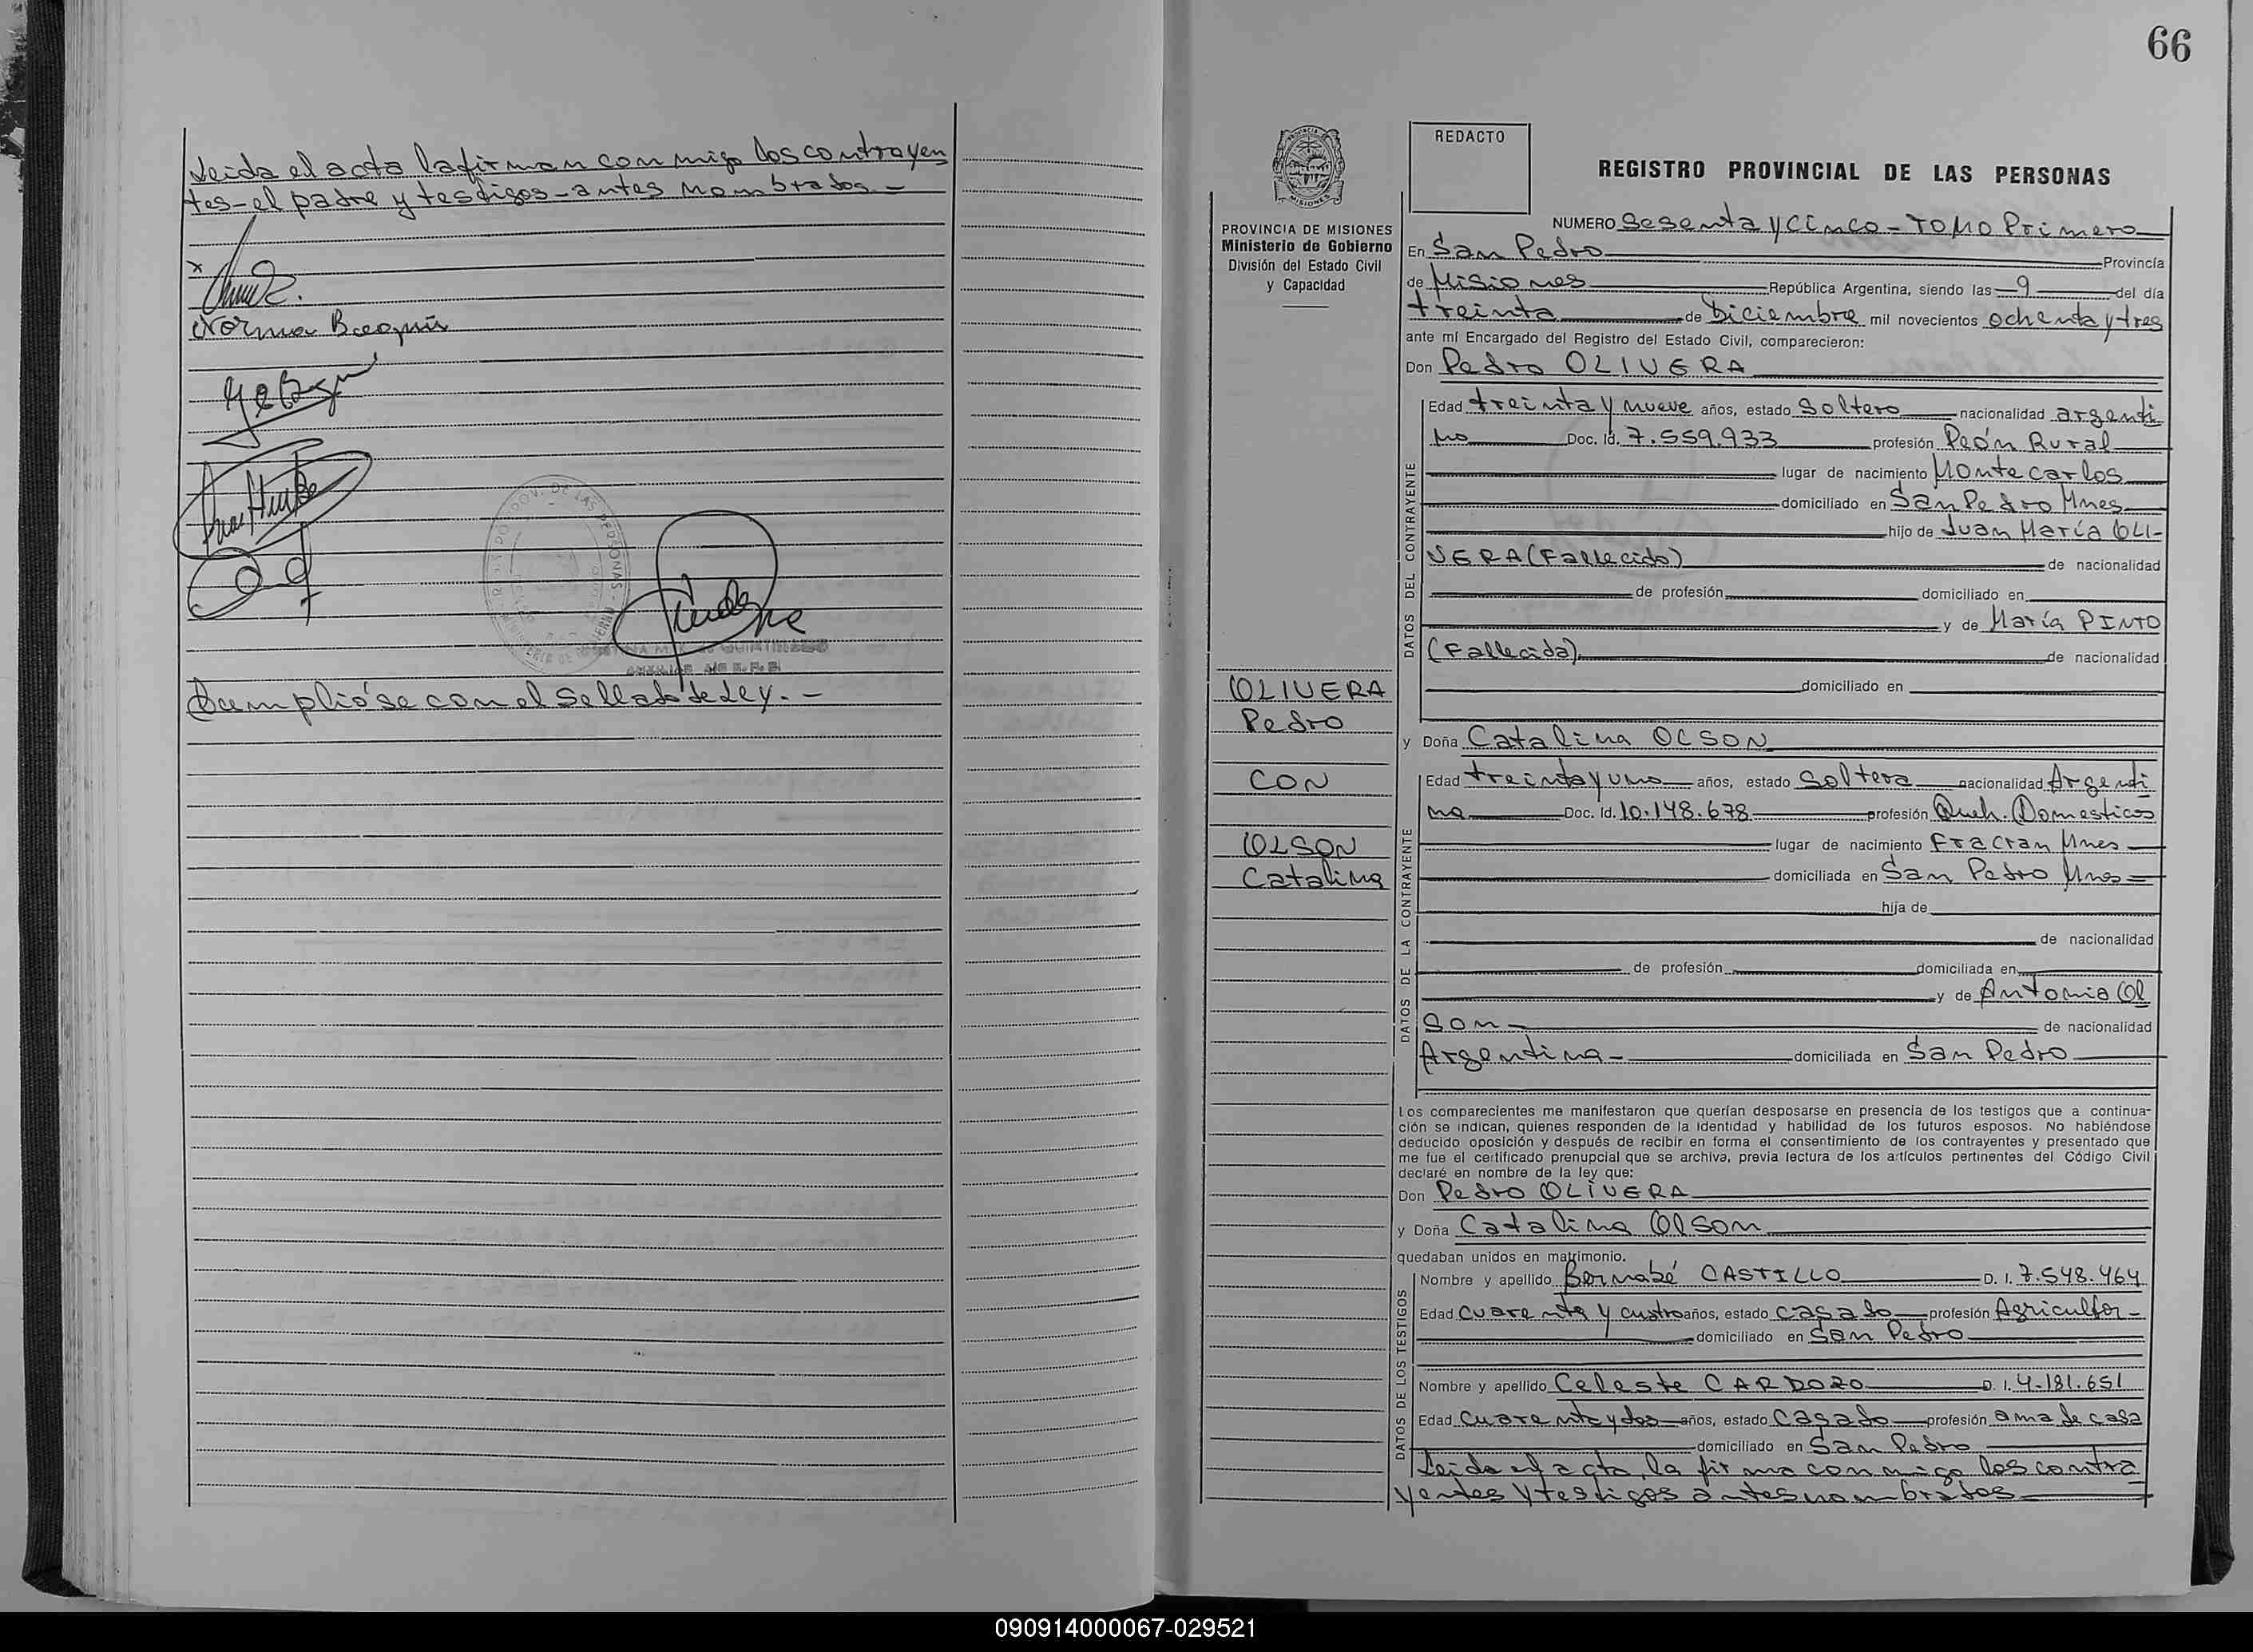 Leida el acta la firman conmigo los contrayen
tes-el padre y testigos-antes nombrados-
x
Norma
Cumplióse con el Sellado de Ley.-
66
PROVINCIA DE MISIONES
Ministerio de Gobierno
División del Estado Civil
y Capacidad
OLIVERA
Pedro
CON
OLSON
Catalina
REDACTO
REGISTRO PROVINCIAL DE LAS PERSONAS
NUMERO Sesenta y Cinco - TOMO Primero
En San Pedro Provincia
de Misiones República Argentina, siendo las 9 del día
treinta de Diciembre mil novecientos ochenta y tres
ante mí Encargado del Registro del Estado Civil, comparecieron:
Don Pedro OLIVERA
DATOS DEL CONTRAYENTE
Edad treinta y nueve años, estado Soltero nacionalidad argenti
no Doc. Id. 7.559.933 profesión Peón Rural
lugar de nacimiento Montecarlos
domiciliado en San Pedro Mnes
hijo de Juan María OLI-
VERA (Fallecido) de nacionalidad
de profesión domiciliado en
y de María PINTO
(Fallecida) de nacionalidad
domiciliado en
y Doña Catalina OLSON
DATOS DE LA CONTRAYENTE
Edad treinta y uno años, estado Soltera nacionalidad Argenti
na Doc. Id. 10.148.678 profesión Queh. Domesticos
lugar de nacimiento Fracran Mnes
domiciliada en San Pedro Mnes
hija de
de nacionalidad
de profesión domiciliada en
y de Antonia Ol
son- de nacionalidad
Argentina- domiciliada en San Pedro
Los comparecientes me manifestaron que querían desposarse en presencia de los testigos que a continua-
ción se indican, quienes responden de la identidad y habilidad de los futuros esposos. No habiéndose
deducido oposición y después de recibir en forma el consentimiento de los contrayentes y presentado que
me fue el certificado prenupcial que se archiva, previa lectura de los artículos pertinentes del Código Civil
declaré en nombre de la ley que:
Don Pedro OLIVERA
y Doña Catalina Olson
quedaban unidos en matrimonio.
DATOS DE LOS TESTIGOS
Nombre y apellido Bernabé CASTILLO D. I. 7.548.464
Edad cuarenta y cuatro años, estado casado profesión Agricultor-
domiciliado en San Pedro
Nombre y apellido Celeste CARDOZO D. I. 4.181.651
Edad Cuarenta y dos años, estado Casado profesión ama de casa
domiciliado en San Pedro
Leida el acta, la firma conmigo los contra
yentes y testigos antes nombrados
090914000067-029521